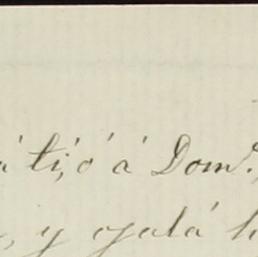 á ti, ó á Domº.
, y ojalá h